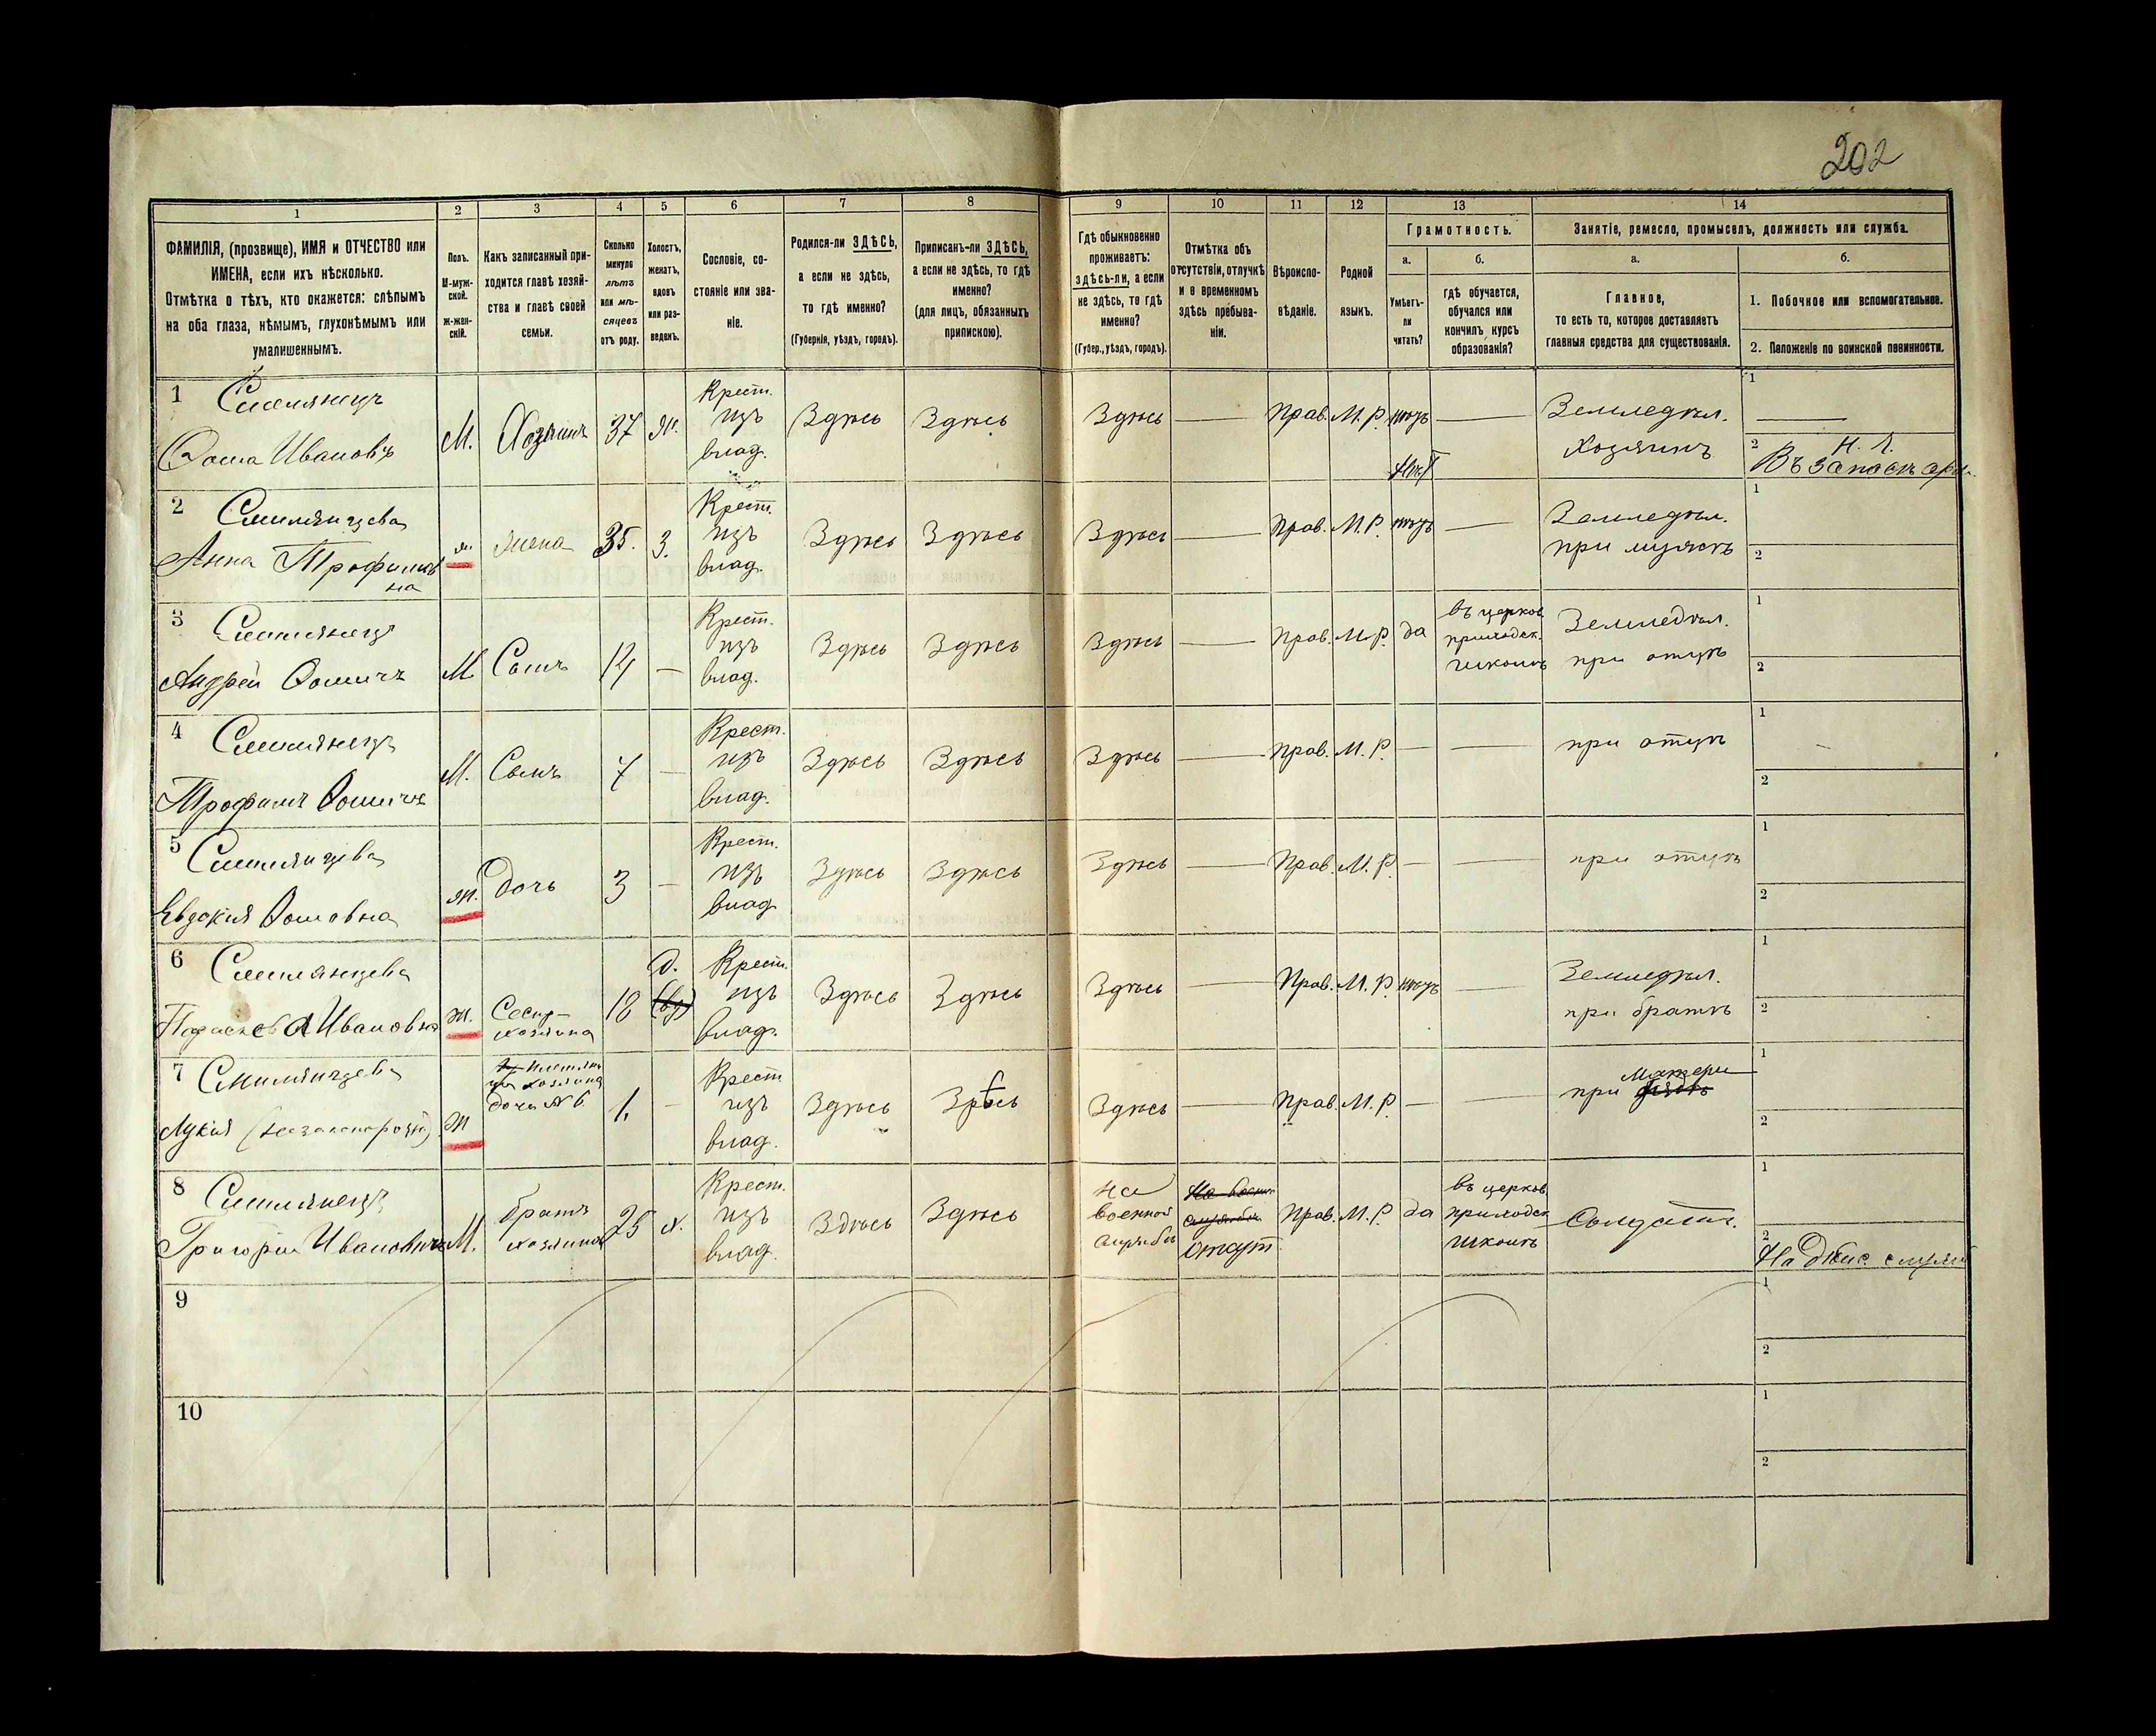 202
1
2
3
4
5
6
7
8
9
10
11
12
13
14
ФАМИЛІЯ, (прозвище), ИМЯ и ОТЧЕСТВО или
ИМЕНА, если ихъ нѣсколько.
Отмѣтка о тѣхъ, кто окажется: слѣпымъ
на оба глаза, нѣмымъ, глухонѣмымъ или
умалишеннымъ.
Полъ.
М-муж-
ской.
Ж-жен-
скій.
Какъ записанный при-
ходится главѣ хозяй-
ства и главѣ своей
семьи.
Сколько
минуло
лѣтъ
или мѣ-
сяцевъ
отъ роду.
Холостъ,
женатъ,
вдовъ
или раз-
веденъ.
Сословіе, со-
стояніе или зва-
ніе.
Родился-ли ЗДѢСЬ,
а если не здѣсь,
то гдѣ именно?
(Губернія, уѣздъ, городъ).
Приписанъ-ли ЗДѢСЬ,
а если не здѣсь, то гдѣ
именно?
(для лицъ, обязанныхъ
припискою).
Гдѣ обыкновенно
проживаетъ:
здѣсь-ли, а если
не здѣсь, то гдѣ
именно?
(Губер., уѣздъ, городъ).
Отмѣтка объ
отсутствіи, отлучкѣ
и о временномъ
здѣсь пребыва-
ніи.
Вѣроиспо-
вѣданіе.
Родной
языкъ.
Грамотность.
а.
Умѣетъ-
ли
читать?
б.
гдѣ обучается,
обучался или
кончилъ курсъ
образованія?
Занятіе, ремесло, промыселъ, должность или служба.
а.
Главное,
то есть то, которое доставляетъ
главныя средства для существованія.
б.
1. Побочное или вспомогательное.
2. Положеніе по воинской повинности.
1
Ѳома Ивановъ
М.
Хозяинъ
37
Ж.
Крест.
изъ
влад.
Здѣсь
Здѣсь
Здѣсь
Прав.
М. Р.
нѣтъ
Земледѣл.
хозяинъ
1
2
Н. Л.
Въ запасѣ
2
Анна Трофимов
на
ж.
жена
35.
З.
Крест.
изъ
влад.
Здѣсь
Здѣсь
Здѣсь
Прав.
М. Р.
нѣтъ
Земледѣл.
при мужѣ
1
2
3
Андрей Ѳомичъ
М
Сынъ
14
Крест.
изъ
влад.
Здѣсь
Здѣсь
Здѣсь
Прав.
М. Р.
да
въ церков.
приходск.
школѣ
Земледѣл.
при отцѣ
1
2
4
Трофимъ Ѳомичъ
М.
Сынъ
7
Крест.
изъ
влад.
Здѣсь
Здѣсь
Здѣсь
Прав.
М. Р.
при отцѣ
1
2
5
Евдокия Ѳомовна
ж.
дочь
3
Крест.
изъ
влад
Здѣсь
Здѣсь
Здѣсь
Прав.
М. Р.
при отцѣ
1
2
6
Ивановна
ж.
Сестр
хозяина
18
д.
Крест.
изъ
влад.
Здѣсь
Здѣсь
Здѣсь
Прав.
М. Р
нѣтъ
Земледѣл.
при братѣ
1
2
7
Лукія
Ж
хозяина
дочь №6
1.
Крест
изъ
влад.
Здѣсь
Здѣсь
Здѣсь
Прав.
М. Р.
при Матери
1
2
8
Григорій Ивановичъ
М.
братъ
хозяина
25
х.
Крест.
изъ
влад.
Здѣсь
Здѣсь
на
военной
службѣ
Прав.
М. Р
да
въ церков.
приходск
школѣ
Солдатъ.
1
2
На дѣйс. служ
9
1
2
10
1
2